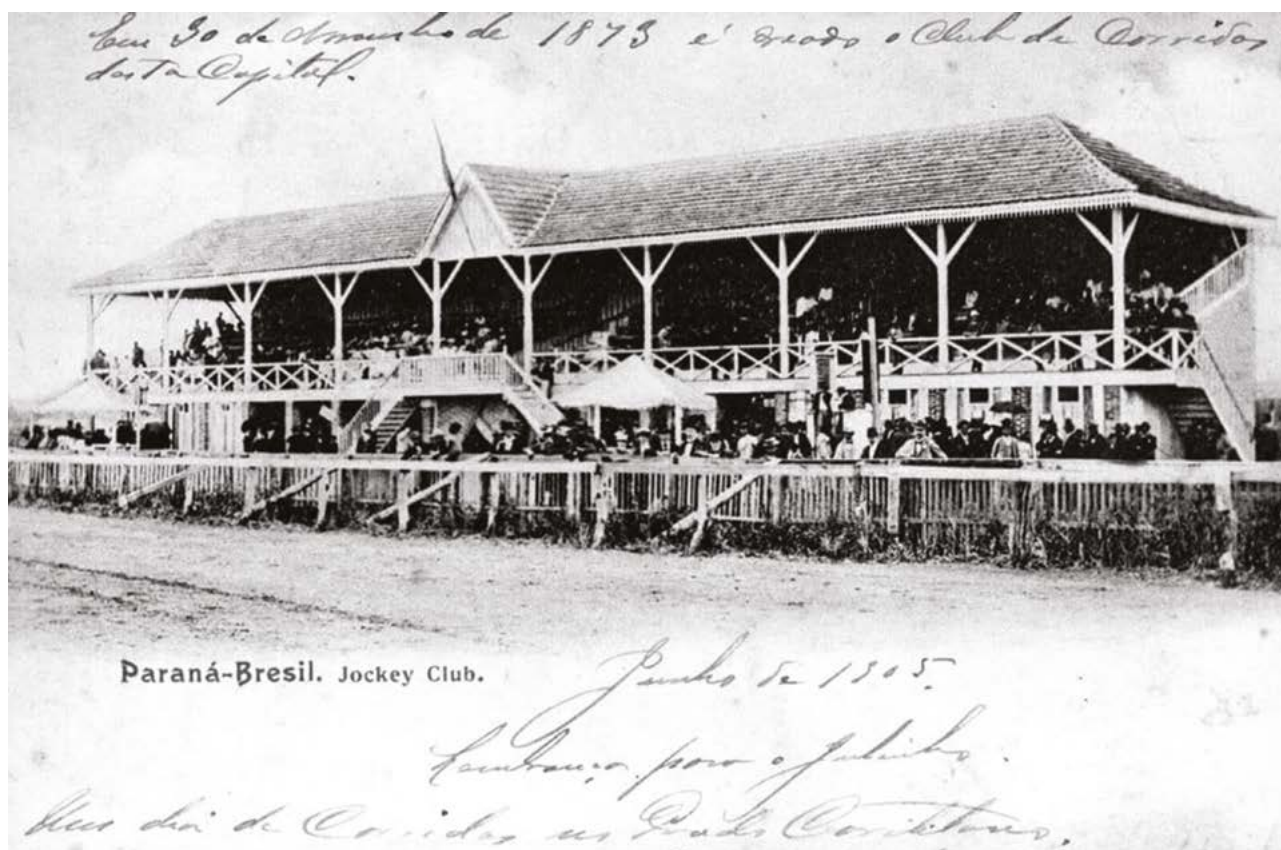 Em 30 de de 1873 é o Club de Corridas
desta Capital.
Paraná-Bresil. Jockey Club.
Junho de 1905.
Lembrança para o Julinho.
Um dia de Corridas no Prado Coritibano.